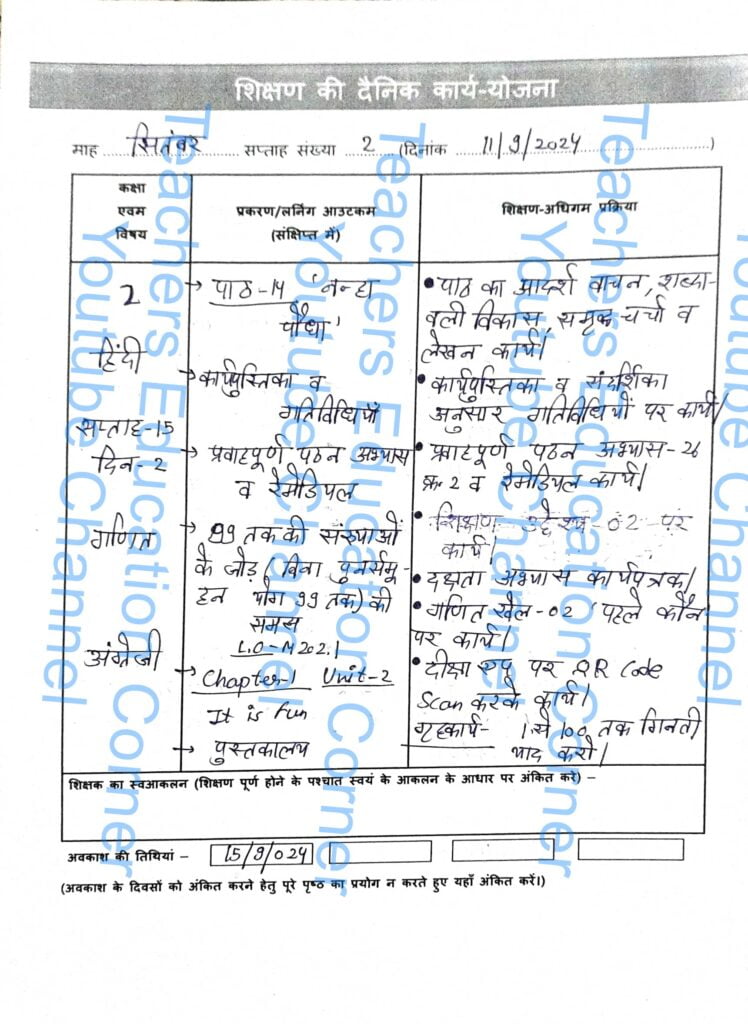 शिक्षण की दैनिक कार्य-योजना
माह सितंबर सप्ताह संख्या 2 (दिनांक 11/9/2024)
कक्षा
एवम
विषय
प्रकरण/लर्निंग आउटकम
(संक्षिप्त में)
शिक्षण-अधिगम प्रक्रिया
2
हिंदी
सप्ताह-15
दिन-2
गणित
अंग्रेजी
→ पाठ-14 'नन्हा
पौधा'
→ कार्यपुस्तिका व
गतिविधियाँ
→ प्रवाहपूर्ण पठन अभ्यास
व रेमेडियल
→ 99 तक की संख्याओं
के जोड़ (बिना पुनर्समू-
हन योग 99 तक) की
समझ
L.O-M202.1
→ Chapter-1 Unit-2
It is fun
→ पुस्तकालय
• पाठ का आदर्श वाचन, शब्दा-
वली विकास, समूह चर्चा व
लेखन कार्य।
• कार्यपुस्तिका व संदर्शिका
अनुसार गतिविधियों पर कार्य।
• प्रवाहपूर्ण पठन अभ्यास-26
क्र. 2 व रेमेडियल कार्य।
• शिक्षण उद्देश्य-02 पर
कार्य।
• दक्षता अभ्यास कार्यपत्रक।
• गणित खेल-02 'पहले कौन'
पर कार्य।
• दीक्षा एप पर QR Code
Scan करके कार्य।
गृहकार्य- 1 से 100 तक गिनती
याद करो।
शिक्षक का स्वआकलन (शिक्षण पूर्ण होने के पश्चात स्वयं के आकलन के आधार पर अंकित करे) –
अवकाश की तिथियां – 15/9/024
(अवकाश के दिवसों को अंकित करने हेतु पूरे पृष्ठ का प्रयोग न करते हुए यहाँ अंकित करें।)
Teachers Education Corner
Youtube Channel
Teachers Education Corner
Youtube Channel
Teachers Education Corner
Youtube Channel